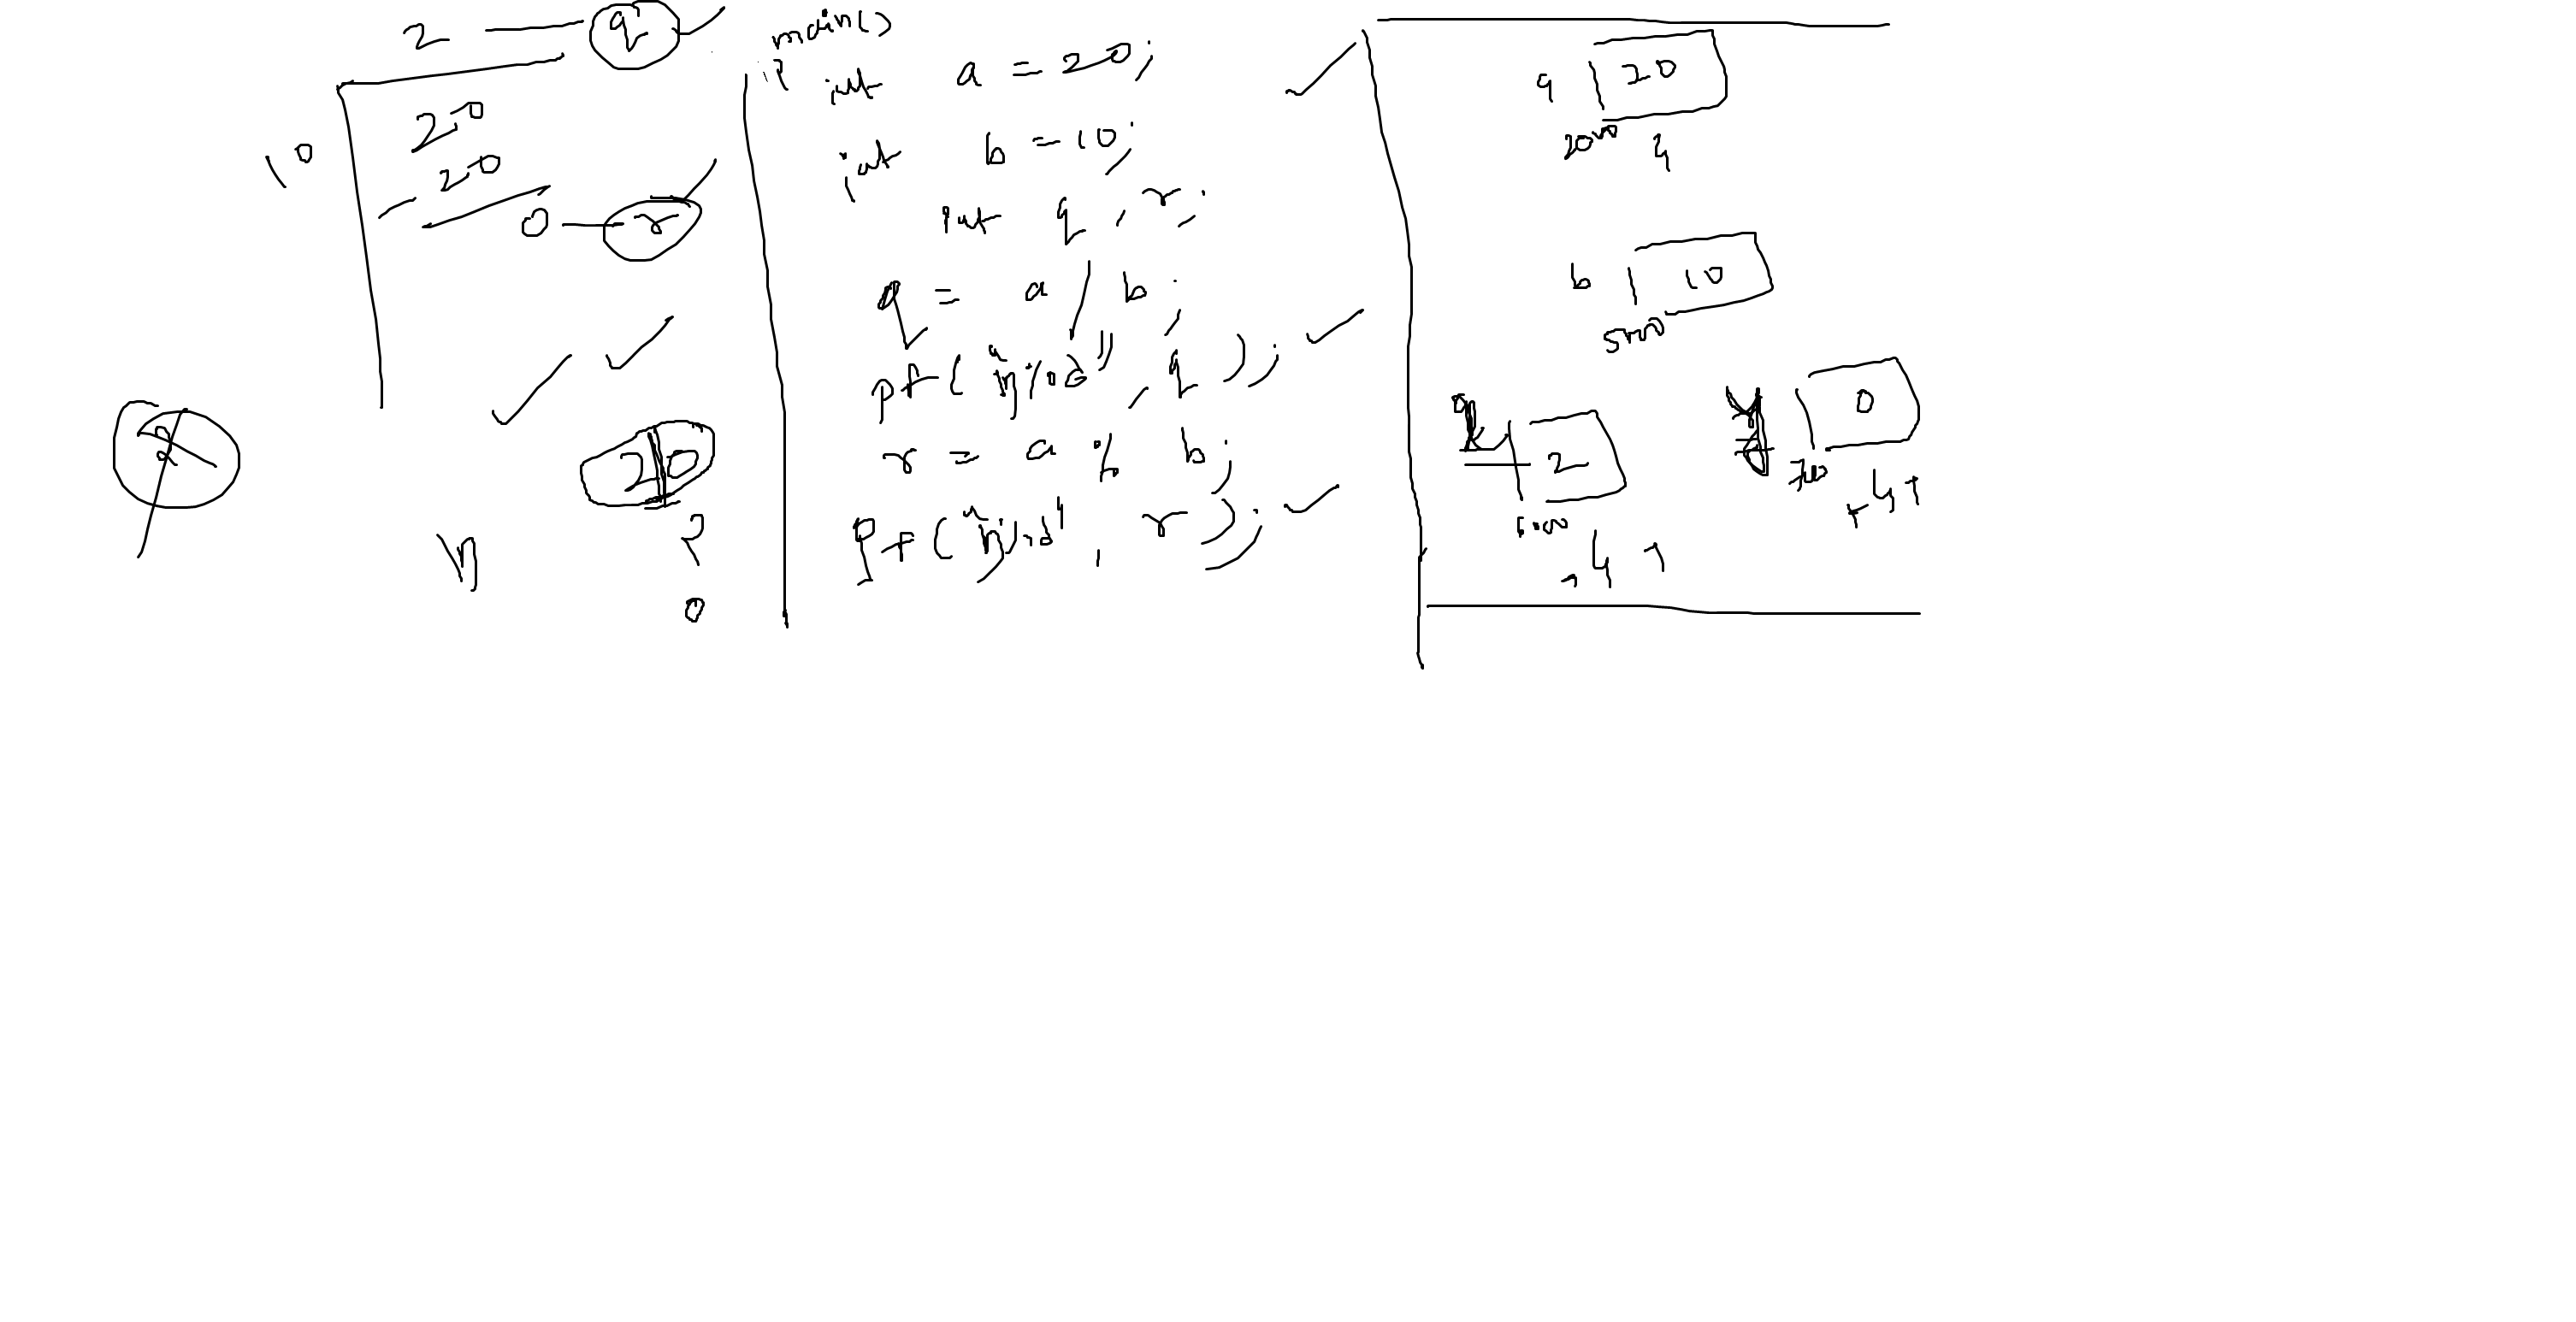 2 — q
10
20
- 20
0 — r
20
\n
2
0
main()
{
int a = 20;
int b = 10;
int q, r;
q = a / b;
pf("\n%d", q);
r = a % b;
pf("\n%d", r);
a 20
2000 4
b 10
5000
q 2
6000
4
0
4